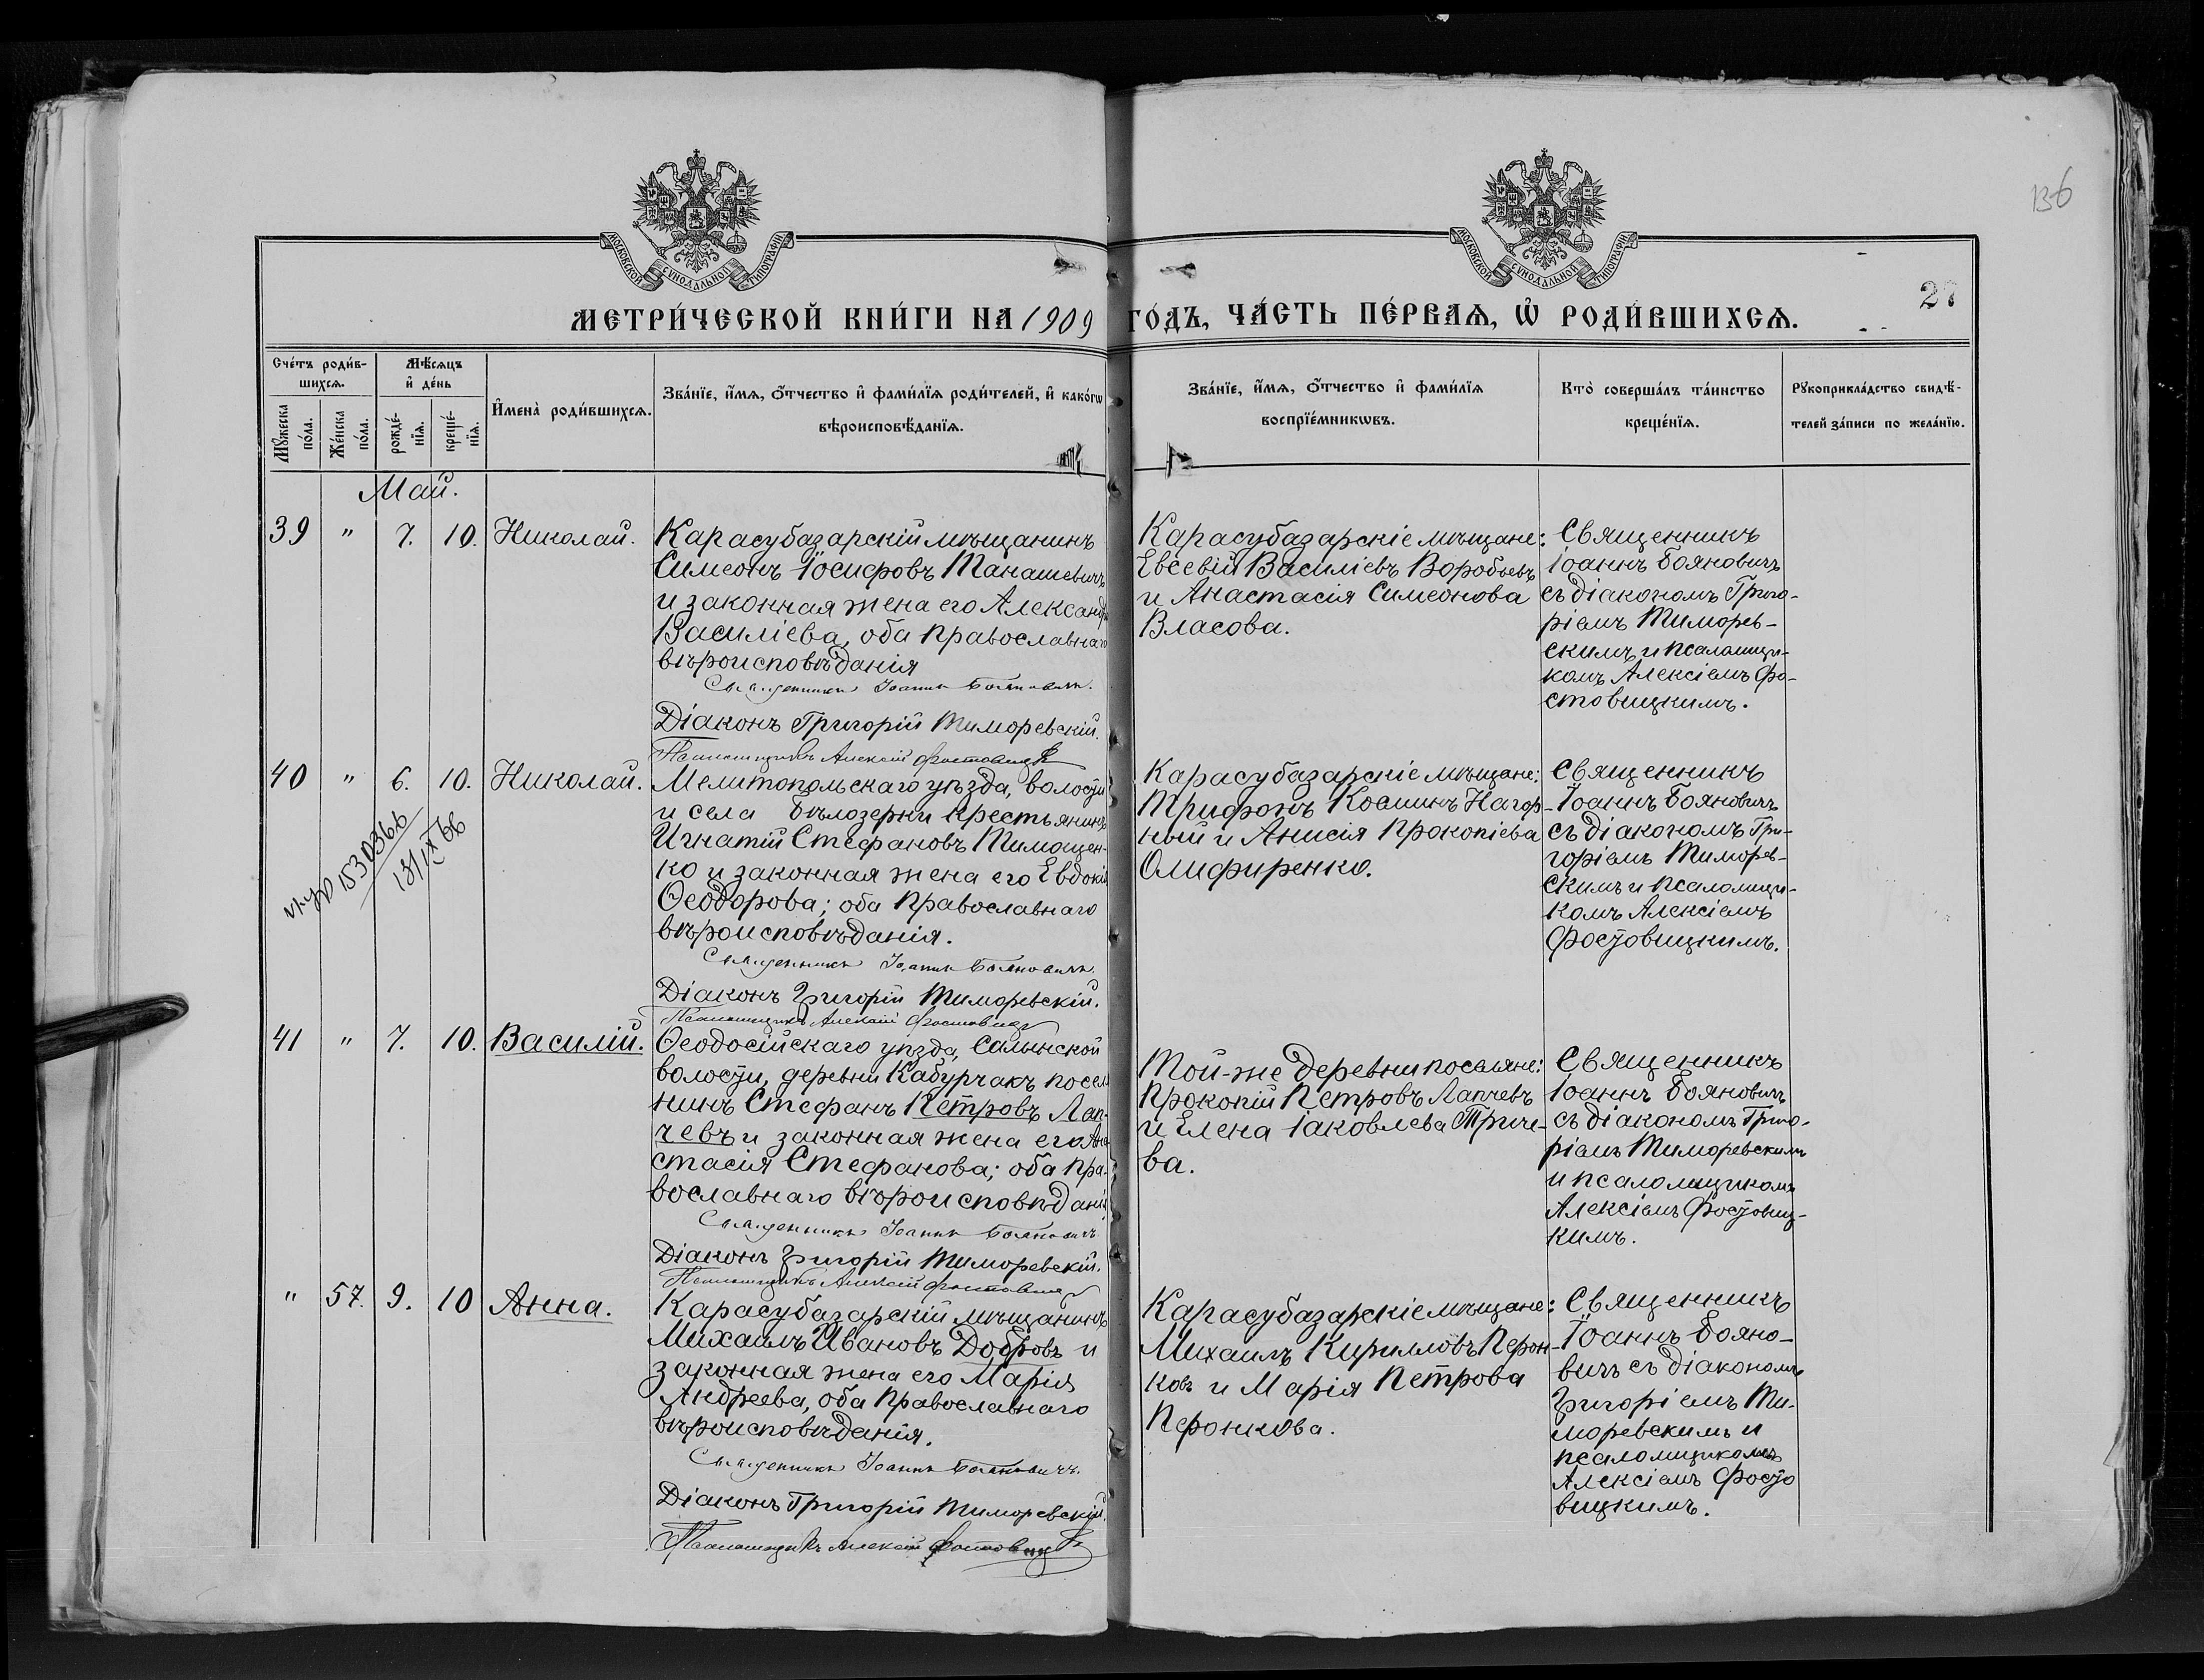 136
МОСКОВСКОЙ СѴНОДАЛЬНОЙ ТИПОГРАФІИ
МОСКОВСКОЙ СѴНОДАЛЬНОЙ ТИПОГРАФІИ
МЕТРИ́ЧЕСКОЙ КНИ́ГИ НА 1909 ГО́ДЪ, ЧА́СТЬ ПЕ́РВАЯ, Ѡ҆ РОДИ́ВШИХСЯ.
27
Сче́тъ роди́в-
шихся.
Мѣ́сяцъ
и҆ де́нь
Мꙋ́жеска
по́ла.
Же́нска
по́ла.
рожде́-
нїя.
креще́-
нїя.
И҆мена̀ роди́вшихся.
Зва́нїе, и҆́мя, ѻ҆́тчество и҆ фами́лїя роди́телей, и҆ како́гѡ
вѣроисповѣ́данїя.
Зва́нїе, и҆́мя, ѻ҆́тчество и҆ фами́лїя
воспрїе́мникѡвъ.
Кто̀ соверша́лъ та́инство
креще́нїя.
Рꙋкоприкла́дство свидѣ́-
телей за́писи по жела́нїю.
Май.
39 " 7. 10. Николай.
Карасубазарскій мѣщанинъ
Симеонъ Іосифовъ Танашевичъ
и законная жена его Александра
Василіева, оба православнаго
вѣроисповѣданія
Священникъ Іоаннъ Бояновичъ.
Діаконъ Григорій Тиморевскій.
Псаломщикъ Алексій Фостовицкій
Карасубазарскіе мѣщане:
Евсевій Василіевъ Воробьевъ
и Анастасія Симеонова
Власова.
Священникъ
Іоаннъ Бояновичъ
съ діакономъ Григо-
ріемъ Тиморев-
скимъ и псаломщи-
комъ Алексіемъ Фо-
стовицкимъ.
40 " 6. 10. Николай.
1530366
13/IX 66
Мелитопольскаго уѣзда, волости
и села Бѣлозерки крестьянинъ
Игнатій Стефановъ Тимощен-
ко и законная жена его Евдокія
Ѳеодорова; оба православнаго
вѣроисповѣданія.
Священникъ Іоаннъ Бояновичъ.
Діаконъ Григорій Тиморевскій.
Псаломщикъ Алексій Фостовицкій
Карасубазарскіе мѣщане:
Трифонъ Косминъ Нагор-
ный и Анисія Прокопіева
Олифиренко.
Священникъ
Іоаннъ Бояновичъ
съ діакономъ Гри-
горіемъ Тиморев-
скимъ и псаломщи-
комъ Алексіемъ
Фостовицкимъ.
41 " 7. 10. Василій.
Ѳеодосійскаго уѣзда, Салынской
волости, деревни Кабурчакъ поселя
нинъ Стефанъ Петровъ Лап-
чевъ и законная жена его Ана
стасія Стефанова; оба пра-
вославнаго вѣроисповѣданія.
Священникъ Іоаннъ Бояновичъ
Діаконъ Григорій Тиморевскій.
Псаломщикъ Алексій Фостовицкій
Той-же деревни поселяне:
Прокопій Петровъ Лапчевъ
и Елена Іаковлева Триче-
ва.
Священникъ
Іоаннъ Бояновичъ
съ діакономъ Григо-
ріемъ Тиморевскимъ
и псаломщикомъ
Алексіемъ Фостовиц-
кимъ.
" 57. 9. 10 Анна.
Карасубазарскій мѣщанинъ
Михаилъ Ивановъ Добровъ и
законная жена его Марія
Андреева, оба православнаго
вѣроисповѣданія.
Священникъ Іоаннъ Бояновичъ.
Діаконъ Григорій Тиморевскій.
Псаломщикъ Алексій Фостовицкій
Карасубазарскіе мѣщане:
Михаилъ Кирилловъ Перон-
ковъ и Марія Петрова
Перонкова.
Священникъ
Іоаннъ Бояно-
вичъ съ діакономъ
Григоріемъ Ти-
моревскимъ и
псаломщикомъ
Алексіемъ Фосто
вицкимъ.